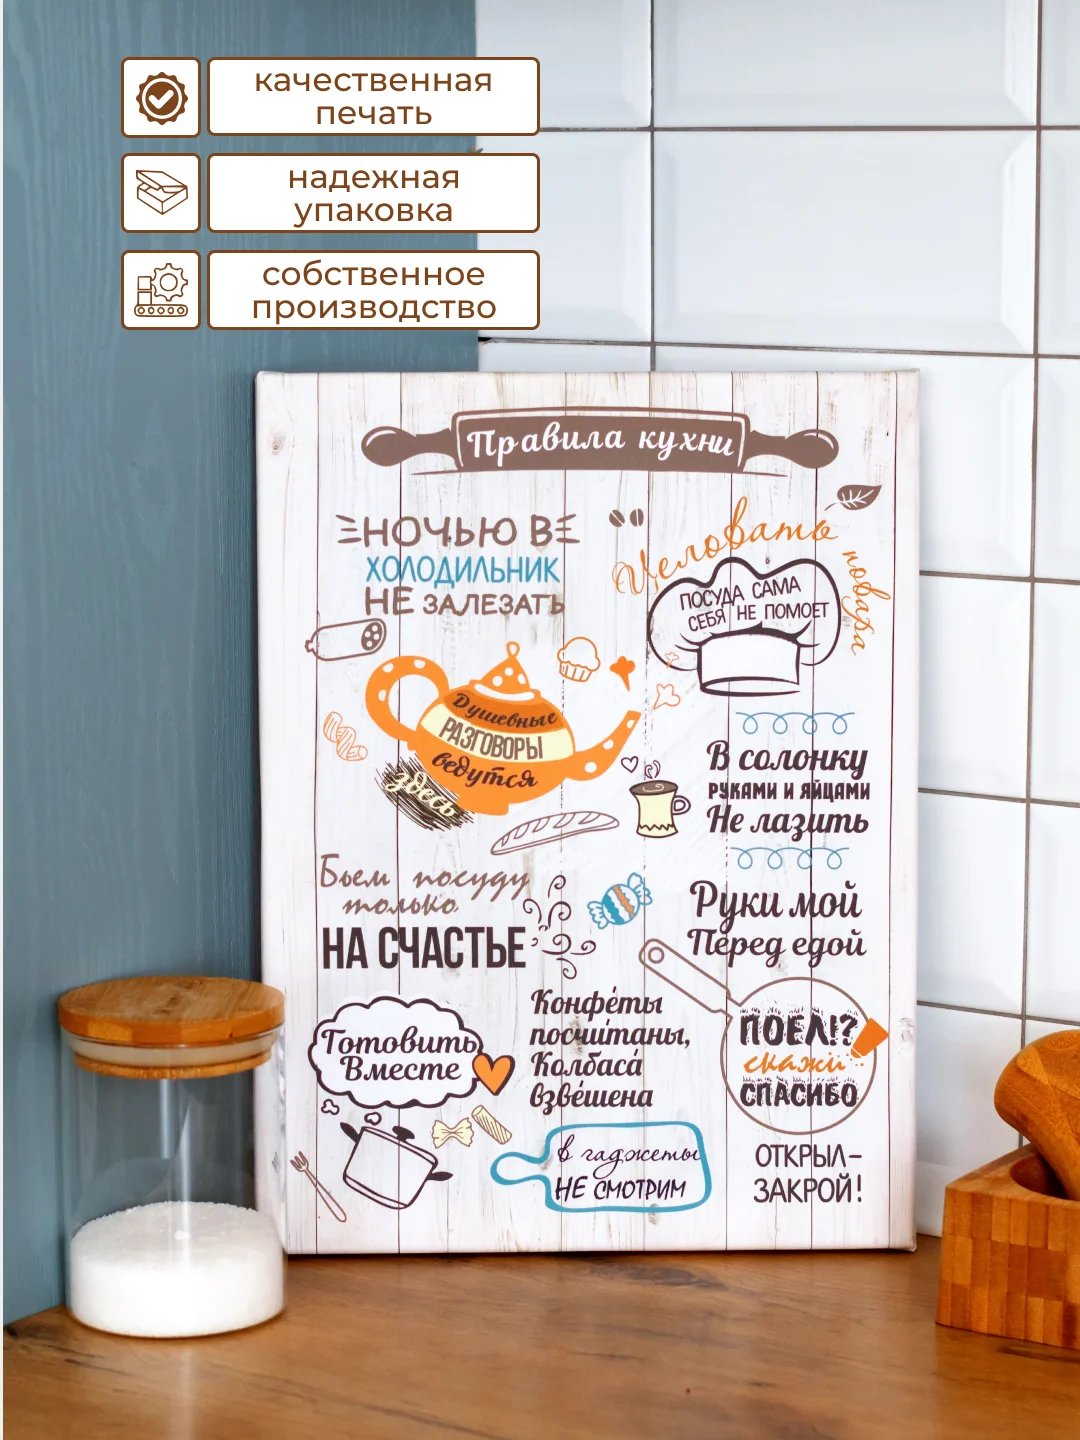 качественная
печать
надежная
упаковка
собственное
производство
Правила кухни
НОЧЬЮ В
ХОЛОДИЛЬНИК
НЕ ЗАЛЕЗАТЬ
Целовать
повара
ПОСУДА САМА
СЕБЯ НЕ ПОМОЕТ
Душевные
РАЗГОВОРЫ
ведутся
здесь
В солонку
РУКАМИ И ЯЙЦАМИ
Не лазить
Бьем посуду
только
НА СЧАСТЬЕ
Руки мой
Перед едой
Готовить
Вместе
Конфе́ты
посчи́таны,
Колбаса́
взве́шена
ПОЕЛ!?
скажи
СПАСИБО
в гаджеты
НЕ СМОТРИМ
ОТКРЫЛ-
ЗАКРОЙ!